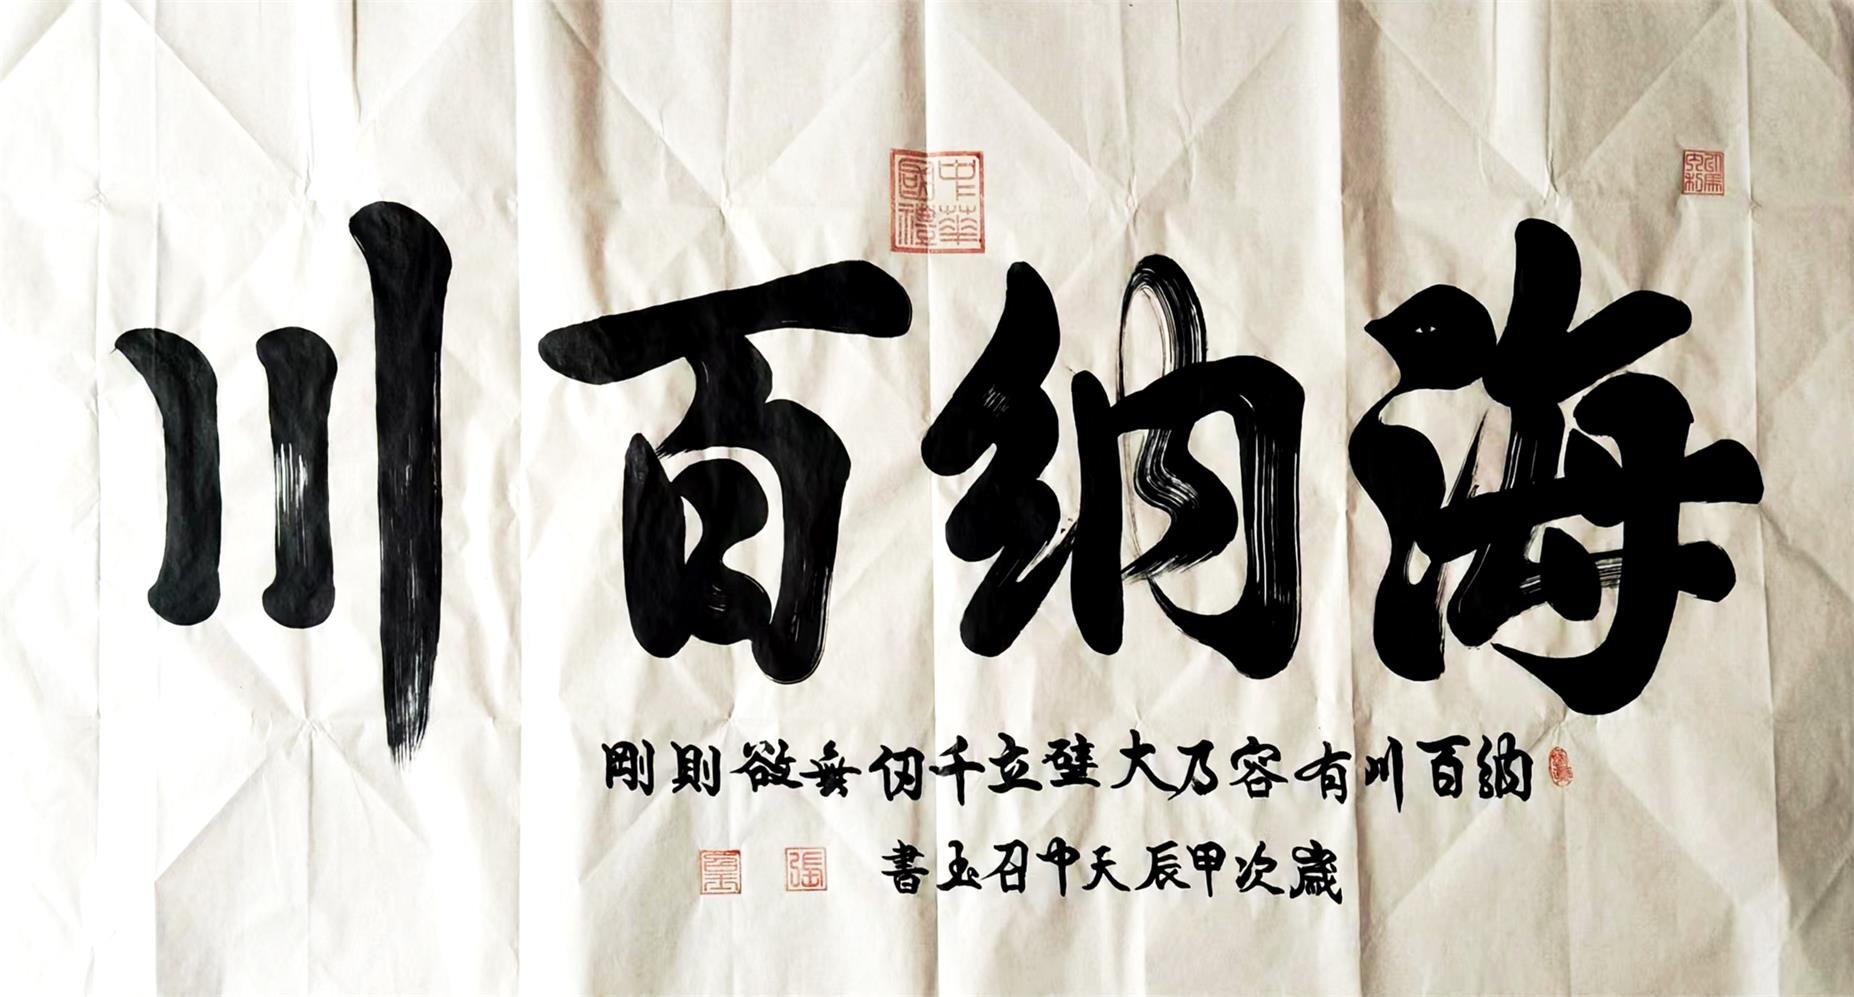 中華國禮
海納百川
納百川有容乃大壁立千仞無欲則剛
歲次甲辰天中召玉書
張